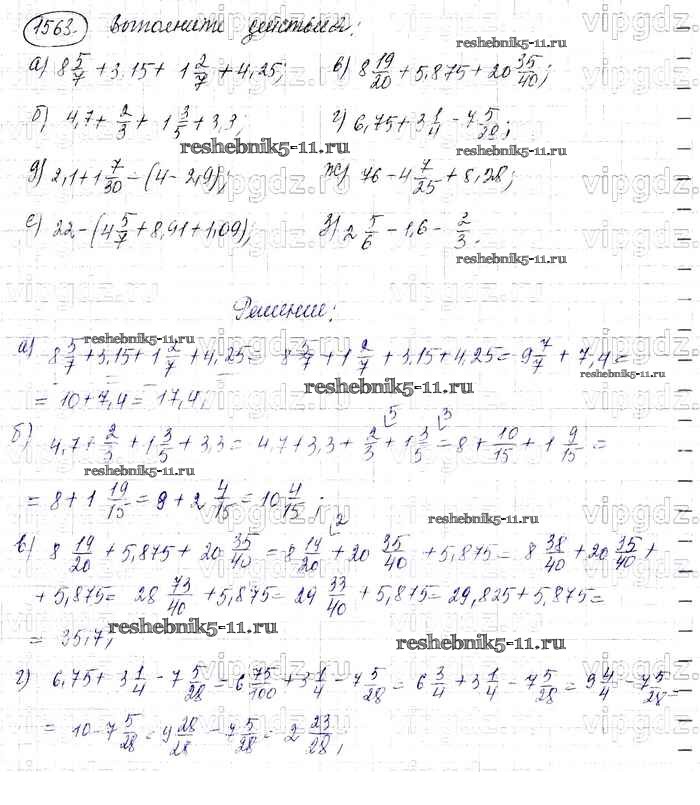 1563. Выполните действия:
а) 8 5/7 + 3,15 + 1 2/7 + 4,25; в) 8 19/20 + 5,875 + 20 35/40;
б) 4,7 + 2/3 + 1 3/5 + 3,3; г) 6,75 + 3 1/4 - 7 5/28;
д) 2,1 + 1 7/30 - (4 - 2,9); ж) 76 - 4 7/25 + 8,28;
е) 22 - (4 5/7 + 8,91 + 1,09); з) 2 5/6 - 1,6 - 2/3.
Решение:
а) 8 5/7 + 3,15 + 1 2/7 + 4,25 = 8 5/7 + 1 2/7 + 3,15 + 4,25 = 9 7/7 + 7,4 =
= 10 + 7,4 = 17,4;
б) 4,7 + 2/3 + 1 3/5 + 3,3 = 4,7 + 3,3 + 2/3 + 1 3/5 = 8 + 10/15 + 1 9/15 =
= 8 + 1 19/15 = 9 + 2 4/15 = 10 4/15;
в) 8 19/20 + 5,875 + 20 35/40 = 8 19/20 + 20 35/40 + 5,875 = 8 38/40 + 20 35/40 +
+ 5,875 = 28 73/40 + 5,875 = 29 33/40 + 5,875 = 29,825 + 5,875 =
= 35,7;
г) 6,75 + 3 1/4 - 7 5/28 = 6 75/100 + 3 1/4 - 7 5/28 = 6 3/4 + 3 1/4 - 7 5/28 = 9 4/4 - 7 5/28 =
= 10 - 7 5/28 = 9 28/28 - 7 5/28 = 2 23/28;
reshebnik5-11.ru
vipgdz.ru